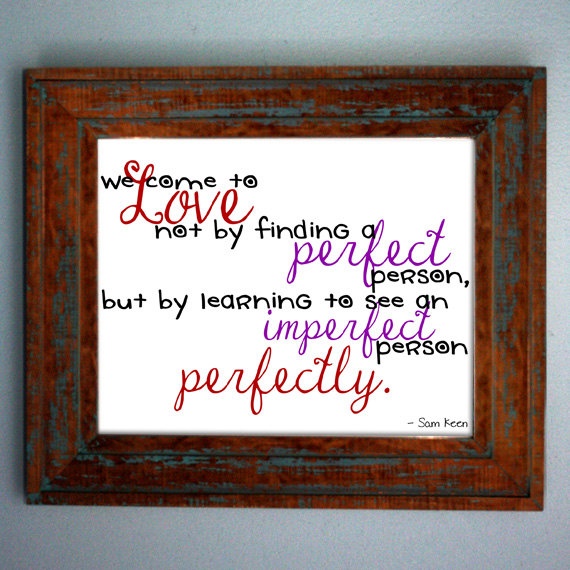 we come to
Love
not by finding a
perfect
person,
but by learning to see an
imperfect
person
perfectly.
- Sam Keen